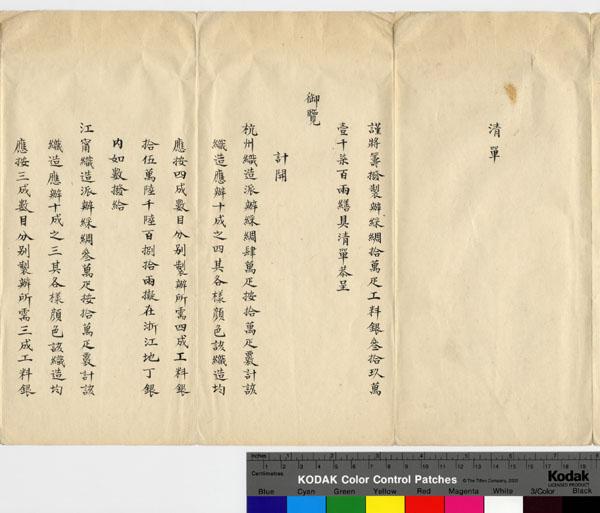 清單
謹將籌撥製辦綵綢拾萬疋工料銀叁拾玖萬
壹千柒百兩繕具清單恭呈
御覽
計開
杭州織造派辦綵綢肆萬疋按拾萬疋覈計該
織造應辦十成之四其各樣顏色該織造均
應按四成數目分別製辦所需四成工料銀
拾伍萬陸千陸百捌拾兩擬在浙江地丁銀
內如數撥給
江甯織造派辦綵綢叁萬疋按拾萬疋覈計該
織造應辦十成之三其各樣顏色該織造均
應按三成數目分別製辦所需三成工料銀
Inches
Centimetres
KODAK Color Control Patches
Kodak
LICENSED PRODUCT
Blue Cyan Green Yellow Red Magenta White 3/Color Black